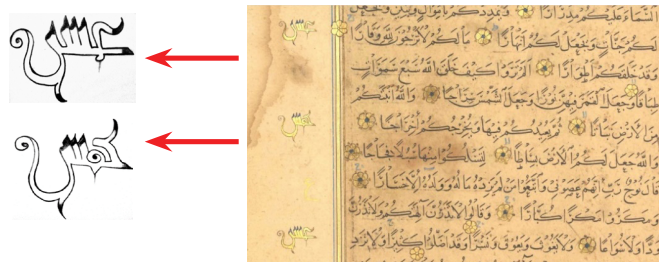 السماء عليكم مدرارا ويمددكم باموال وبنين ويجعل
لكم جنات ويجعل لكم انهارا ما لكم لا ترجون لله وقارا
وقد خلقكم اطوارا الم تروا كيف خلق الله سبع سموات
طباقا وجعل القمر فيهن نورا وجعل الشمس سراجا والله انبتكم
من الارض نباتا ثم يعيدكم فيها ويخرجكم اخراجا
والله جعل لكم الارض بساطا لتسلكوا منها سبلا فجاجا
قال نوح رب انهم عصوني واتبعوا من لم يزده ماله وولده الا خسارا
ومكروا مكرا كبارا وقالوا لا تذرن الهتكم ولا تذرن
ودا ولا سواعا ولا يغوث ويعوق ونسرا وقد اضلوا كثيرا ولا تزد